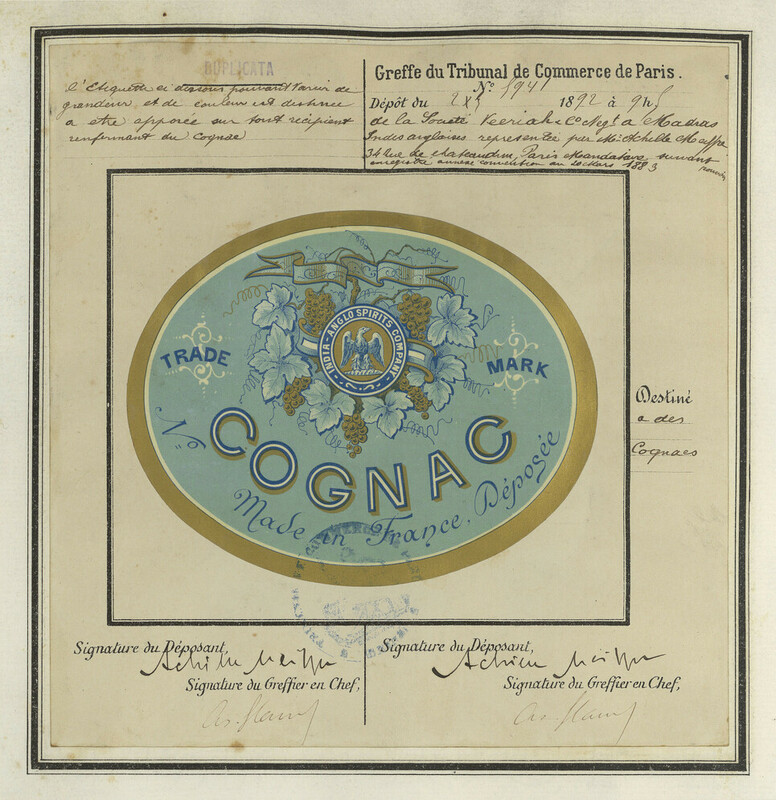 DUPLICATA
l'Etiquette ci dessous pouvant varier de
grandeur, et de couleur est destinée
a être apposée sur tout récipient
renfermant du Cognac
Greffe du Tribunal de Commerce de Paris.
Nº
Dépôt du 1892 à 9h
de la Société Veeriah & Co a Madras
Indes anglaises representée par Mr Achille
34 Rue de Chateaudun, Paris Mandataire suivant
enregistré annexe convention au 20 Mars 1883
INDIA-ANGLO SPIRITS COMPANY
TRADE
MARK
Nº
COGNAC
Made in France, Déposée
Destiné
a des
Cognacs
Signature du Déposant,
Signature du Greffier en Chef,
Signature du Déposant,
Signature du Greffier en Chef,